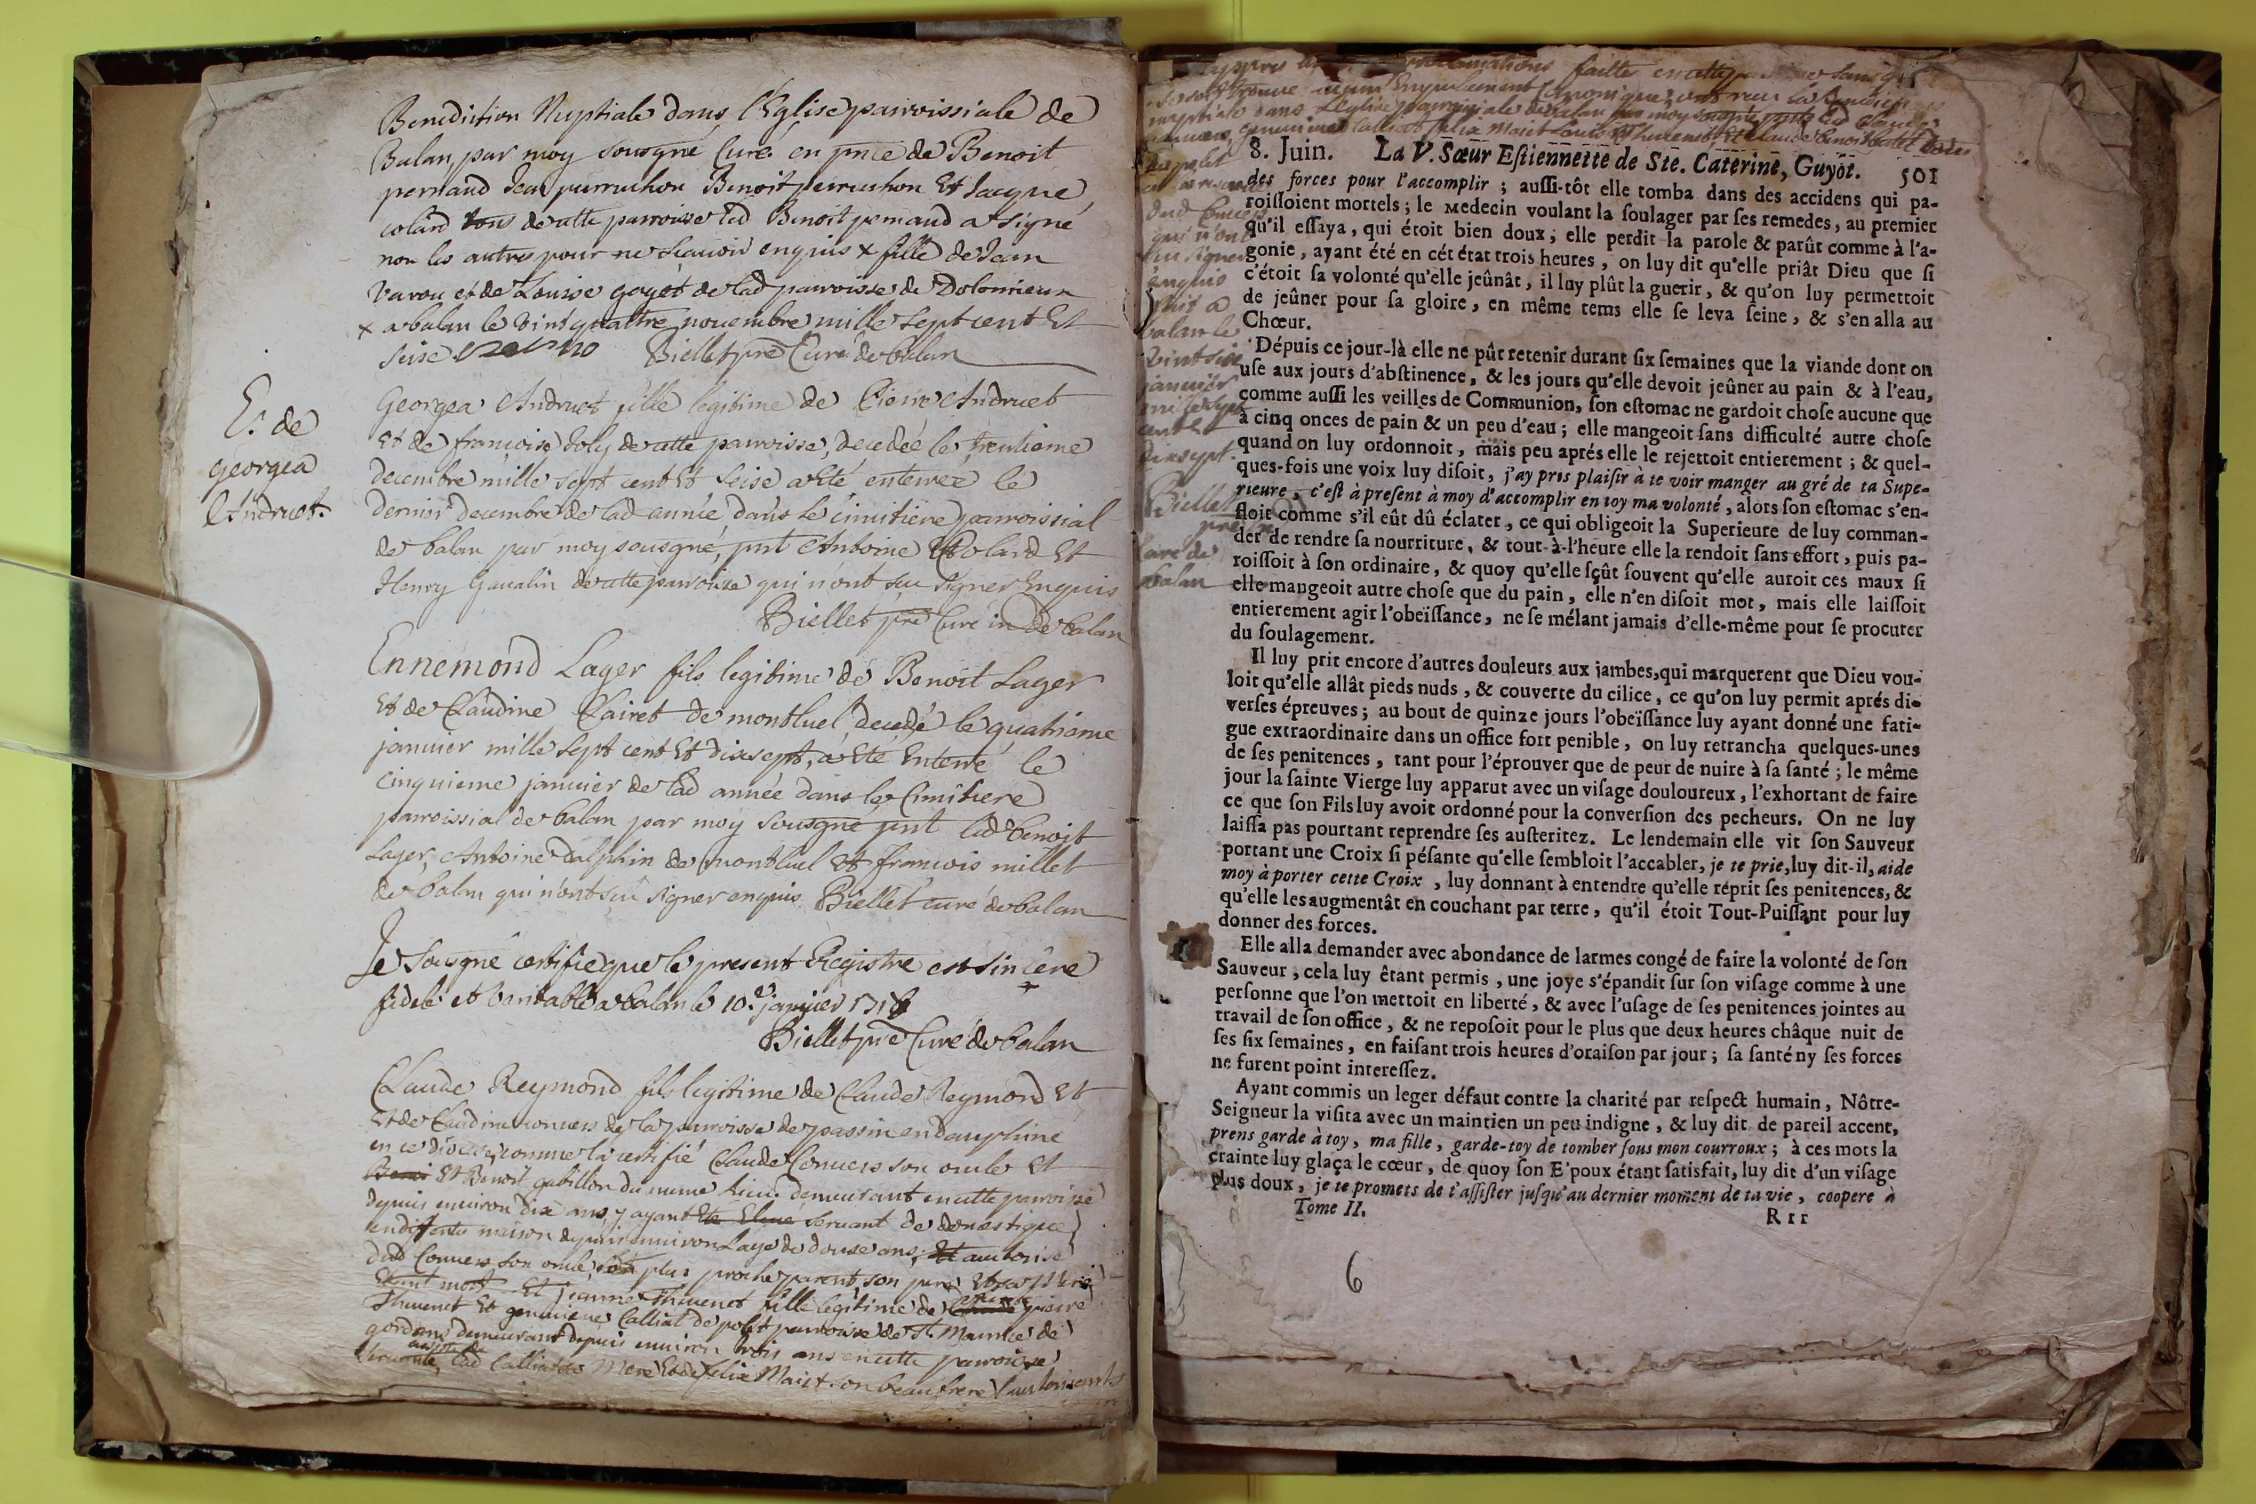 Benediction Nuptiale dans l'Eglise parroissiale de
Balan, par moy sousgné Curé en pnce de Benoit
pernaud Jean perruchon Benoit perruchon Et Jacque
colard tous de cette parroisse led Benoit pernaud a signé
non les autres pour ne scavoir enquis x fille de Jean
Varou et de Louise goyet de lad parroisse de Dolomieux
x a balan le vint quattre novembre mille sept cent Et
seise Biellet pre Curé de balan
E. de
georgea
Andruet.
Georgea Andruet fille legitime de Pierre Andruet
Et de françoise Joly de cette parroisse, decedée le trentieme
decembre mille sept cent Et seise a été enterrée le
dernier decembre de lad année dans le cimitiere parroissial
de balan par moy sousgné, pnt Antoine Colard Et
Henry Gaudin de cette parroisse qui n'ont sçu signer Enquis
Biellet pre Curé de balan
Ennemond Lager fils legitime de Benoit Lager
Et de Claudine Clairet de montluel decedé le quatrieme
janvier mille sept cent Et dixsept, a Eté Enterré le
cinquieme janvier de lad année dans le Cimitiere
parroissial de balan par moy sousgné pnt led benoit
Lager, Antoine Dalphin de montluel Et françois millet
de balan qui n'ont sçu signer enquis Biellet curé de balan
Je Sousgné certifie que le present Registre est sincêre
fidele et veritable a balan le 10.e janvier 171
Biellet pre Curé de balan
Claude Reymond fils legitime de Claude Reymond Et
Et de Claudine convers de la parroisse de passin en dauphiné
en ce diocese, comme l'a certifié Claude Convers son oncle Et
Et Benoit gabillon du meme lieu demeurant en cette parroisse
depuis environ dix ans y ayant servant de domestique
en differente maison depuis environ l'age de douse ans, autorisé
dud Convers son oncle plus proche parent, son pere
Etant mort Et jeanne Thevenet fille legitime de pierre
Thevenet Et genevieve Calliat de polet parroisse de St. Maurice de
gordans demeurant depuis environ trois ans en cette parroisse
lad Calliat sa Mere Et de felix Maist son beaufrere
proclamations faitte
8. Juin. La V. Sœur Eſtiennette de Ste. Caterine, Guyot. 501
des forces pour l'accomplir ; auſſi-tôt elle tomba dans des accidens qui pa-
roiſſoient mortels ; le Medecin voulant la ſoulager par ſes remedes, au premier
qu'il eſſaya, qui étoit bien doux ; elle perdit la parole & parût comme à l'a-
gonie, ayant été en cét état trois heures, on luy dit qu'elle priât Dieu que ſi
c'étoit ſa volonté qu'elle jeûnât, il luy plût la guerir, & qu'on luy permettoit
de jeûner pour ſa gloire, en même tems elle ſe leva ſeine, & s'en alla au
Chœur.
Dépuis ce jour-là elle ne pût retenir durant ſix ſemaines que la viande dont on
uſe aux jours d'abſtinence, & les jours qu'elle devoit jeûner au pain & à l'eau,
comme auſſi les veilles de Communion, ſon eſtomac ne gardoit choſe aucune que
à cinq onces de pain & un peu d'eau ; elle mangeoit ſans difficulté autre choſe
quand on luy ordonnoit, mais peu aprés elle le rejettoit entierement ; & quel-
ques-fois une voix luy diſoit, j'ay pris plaiſir à te voir manger au gré de ta Supe-
rieure, c'eſt à preſent à moy d'accomplir en toy ma volonté, alors ſon eſtomac s'en-
floit comme s'il eût dû éclater, ce qui obligeoit la Superieure de luy comman-
der de rendre ſa nourriture, & tout-à-l'heure elle la rendoit ſans effort, puis pa-
roiſſoit à ſon ordinaire, & quoy qu'elle ſçût ſouvent qu'elle auroit ces maux ſi
elle mangeoit autre choſe que du pain, elle n'en diſoit mot, mais elle laiſſoit
entierement agir l'obeïſſance, ne ſe mélant jamais d'elle-même pour ſe procurer
du ſoulagement.
Il luy prit encore d'autres douleurs aux jambes, qui marquerent que Dieu vou-
loit qu'elle allât pieds nuds, & couverte du cilice, ce qu'on luy permit aprés di-
verſes épreuves ; au bout de quinze jours l'obeïſſance luy ayant donné une fati-
gue extraordinaire dans un office fort penible, on luy retrancha quelques-unes
de ſes penitences, tant pour l'éprouver que de peur de nuire à ſa ſanté ; le même
jour la ſainte Vierge luy apparut avec un viſage douloureux, l'exhortant de faire
ce que ſon Fils luy avoit ordonné pour la converſion des pecheurs. On ne luy
laiſſa pas pourtant reprendre ſes auſteritez. Le lendemain elle vit ſon Sauveur
portant une Croix ſi péſante qu'elle ſembloit l'accabler, je te prie, luy dit-il, aide
moy à porter cette Croix, luy donnant à entendre qu'elle réprit ſes penitences, &
qu'elle les augmentât en couchant par terre, qu'il étoit Tout-Puiſſant pour luy
donner des forces.
Elle alla demander avec abondance de larmes congé de faire la volonté de ſon
Sauveur, cela luy êtant permis, une joye s'épandit ſur ſon viſage comme à une
perſonne que l'on mettoit en liberté, & avec l'uſage de ſes penitences jointes au
travail de ſon office, & ne repoſoit pour le plus que deux heures châque nuit de
ſes ſix ſemaines, en faiſant trois heures d'oraiſon par jour ; ſa ſanté ny ſes forces
ne furent point intereſſez.
Ayant commis un leger défaut contre la charité par reſpect humain, Nôtre-
Seigneur la viſita avec un maintien un peu indigne, & luy dit de pareil accent,
prens garde à toy, ma fille, garde-toy de tomber ſous mon courroux ; à ces mots la
crainte luy glaça le cœur, de quoy ſon E'poux étant ſatisfait, luy dit d'un viſage
plus doux, je te promets de t'aſſiſter juſqu'au dernier moment de ta vie, coopere à
Tome II. Rrr
dud Convers
qui n'ont
sçu signer
enquis
fait a
balan le
vint six
janvier
mille sept
cent Et
dixsept.
Biellet
pre
Curé de
balan
6